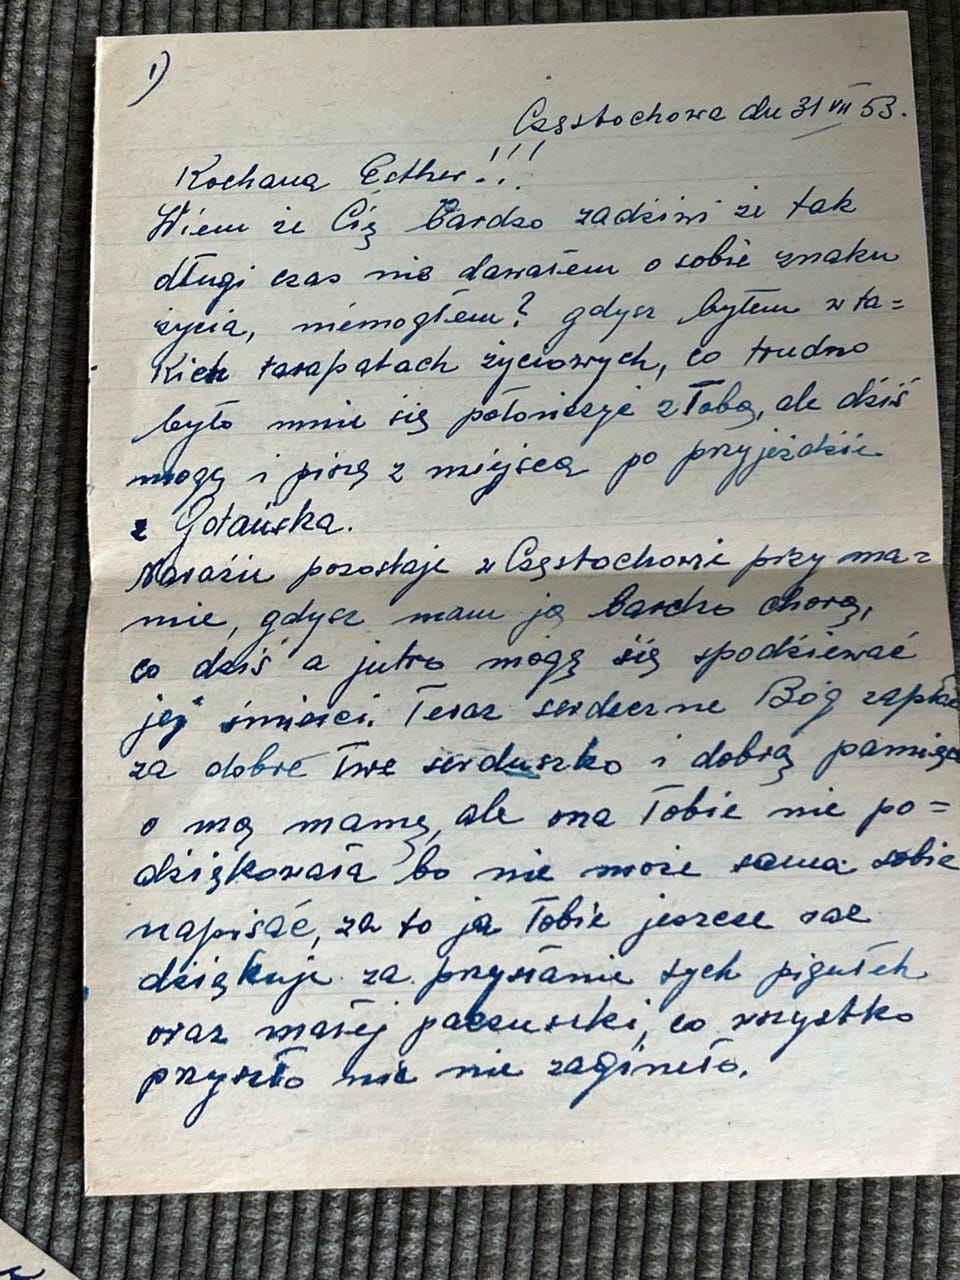 1)
Częstochowa dn 31 VII 53.
Kochaną Esther!!!
Wiem że Cię bardzo zadziwi że tak
długi czas nie dawałem o sobie znaku
życia, niemogłem? gdysz byłem w ta=
kich tarapatach życiowych, co trudno
było mnie się połonczyć z Tobą, ale dziś
mogę i piszę z miejscą po przyjeździe
z Gdańska.
Narazie pozostaje w Częstochowie przy ma=
mie, gdysz mam ją bardzo chorą,
co dziś a jutro mogę się spodziewać
jej śmierci. Teraz serdeczne Bóg
za dobre Twe serduszko i dobrą
o mą mamę, ale ona Tobie nie po=
dziękowała bo nie może sama sobie
napisać, za to ja Tobie jeszcze raz
dziękuje za przysłanie tych pigułek
oraz małej paczuszki, co wszystko
przyszło nic nie zagineło.